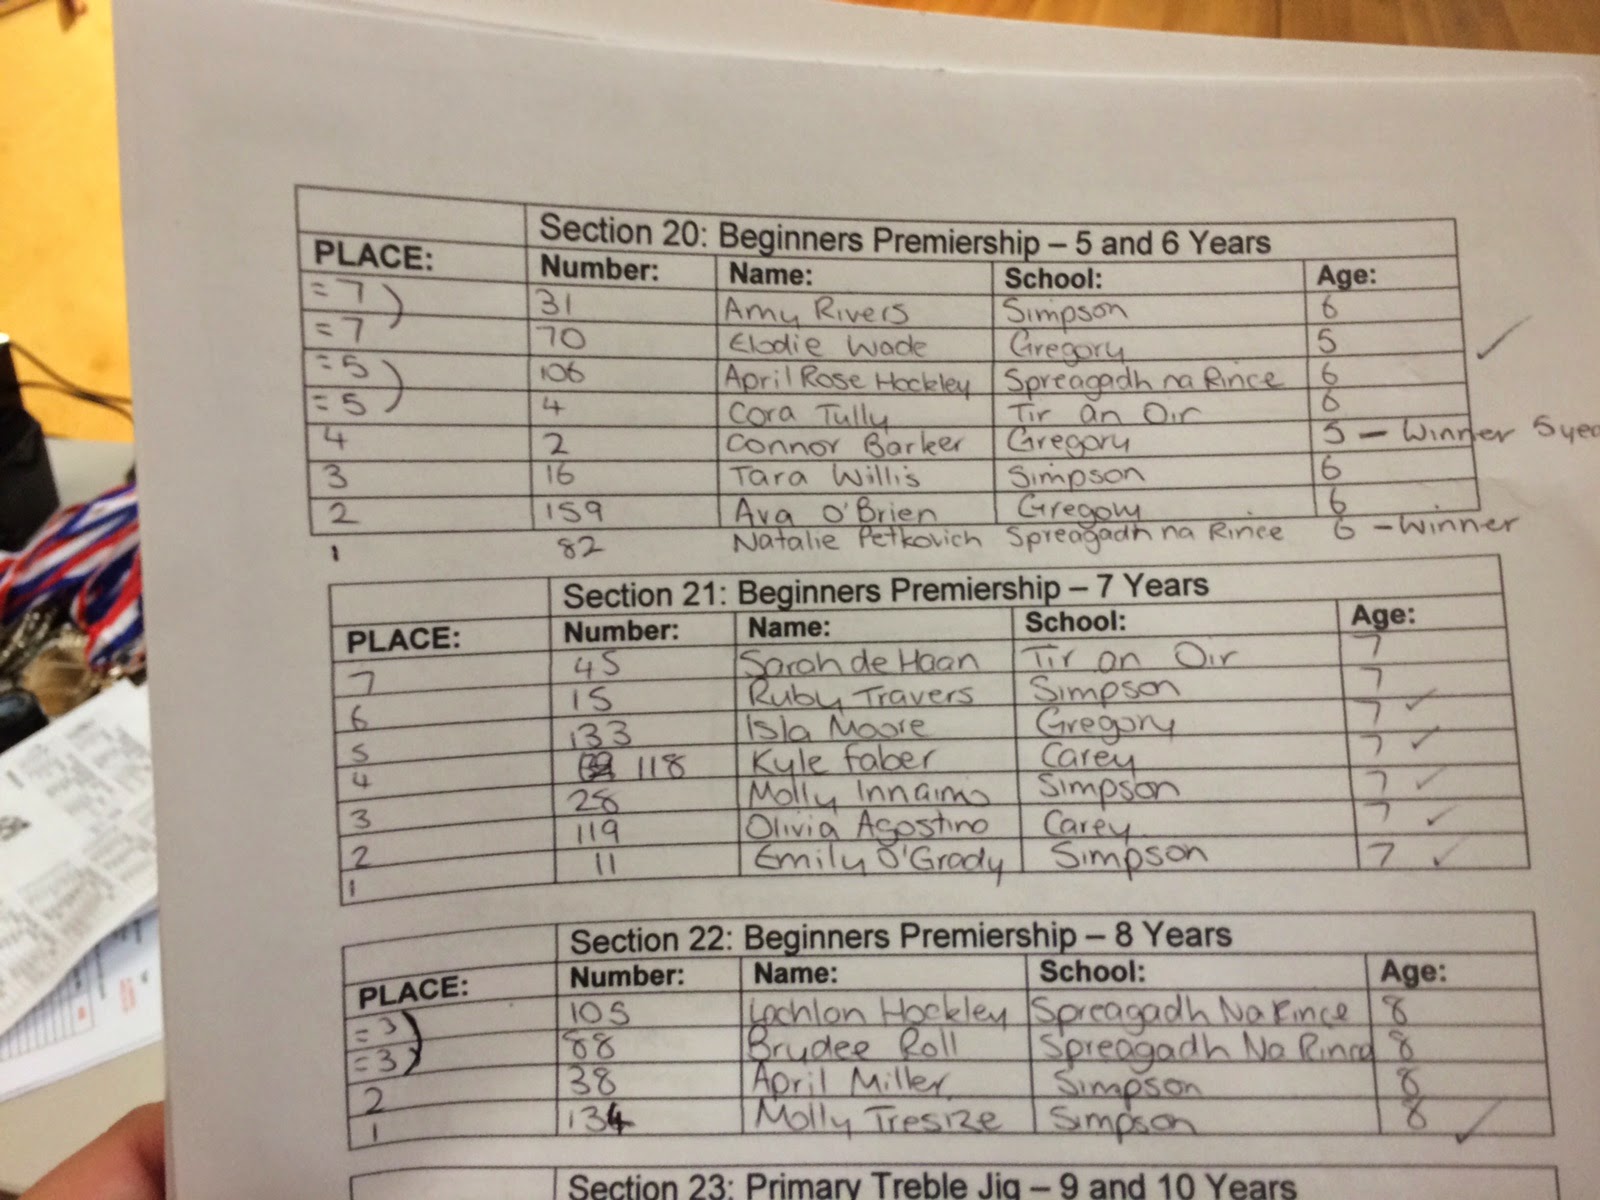 Section 20: Beginners Premiership – 5 and 6 Years
PLACE: Number: Name: School: Age:
=7 31 Amy Rivers Simpson 6
=7 70 Elodie Wade Gregory 5
=5 106 April Rose Hockley Spreagadh na Rince 6
=5 4 Cora Tully Tir an Oir 6
4 2 Connor Barker Gregory 5 – Winner 5
3 16 Tara Willis Simpson 6
2 159 Ava O'Brien Gregory 6
1 82 Natalie Petkovich Spreagadh na Rince 6 – Winner
Section 21: Beginners Premiership – 7 Years
PLACE: Number: Name: School: Age:
7 45 Sarah de Haan Tir an Oir 7
6 15 Ruby Travers Simpson 7
5 133 Isla Moore Gregory 7
4 118 Kyle Faber Carey 7
3 28 Molly Innaimo Simpson 7
2 119 Olivia Agostino Carey 7
1 11 Emily O'Grady Simpson 7
Section 22: Beginners Premiership – 8 Years
PLACE: Number: Name: School: Age:
=3 105 Lachlan Hockley Spreagadh Na Rince 8
=3 88 Brydee Roll Spreagadh Na Rince 8
2 38 April Miller Simpson 8
1 134 Molly Tresize Simpson 8
Section 23: Primary Treble Jig – 9 and 10 Years